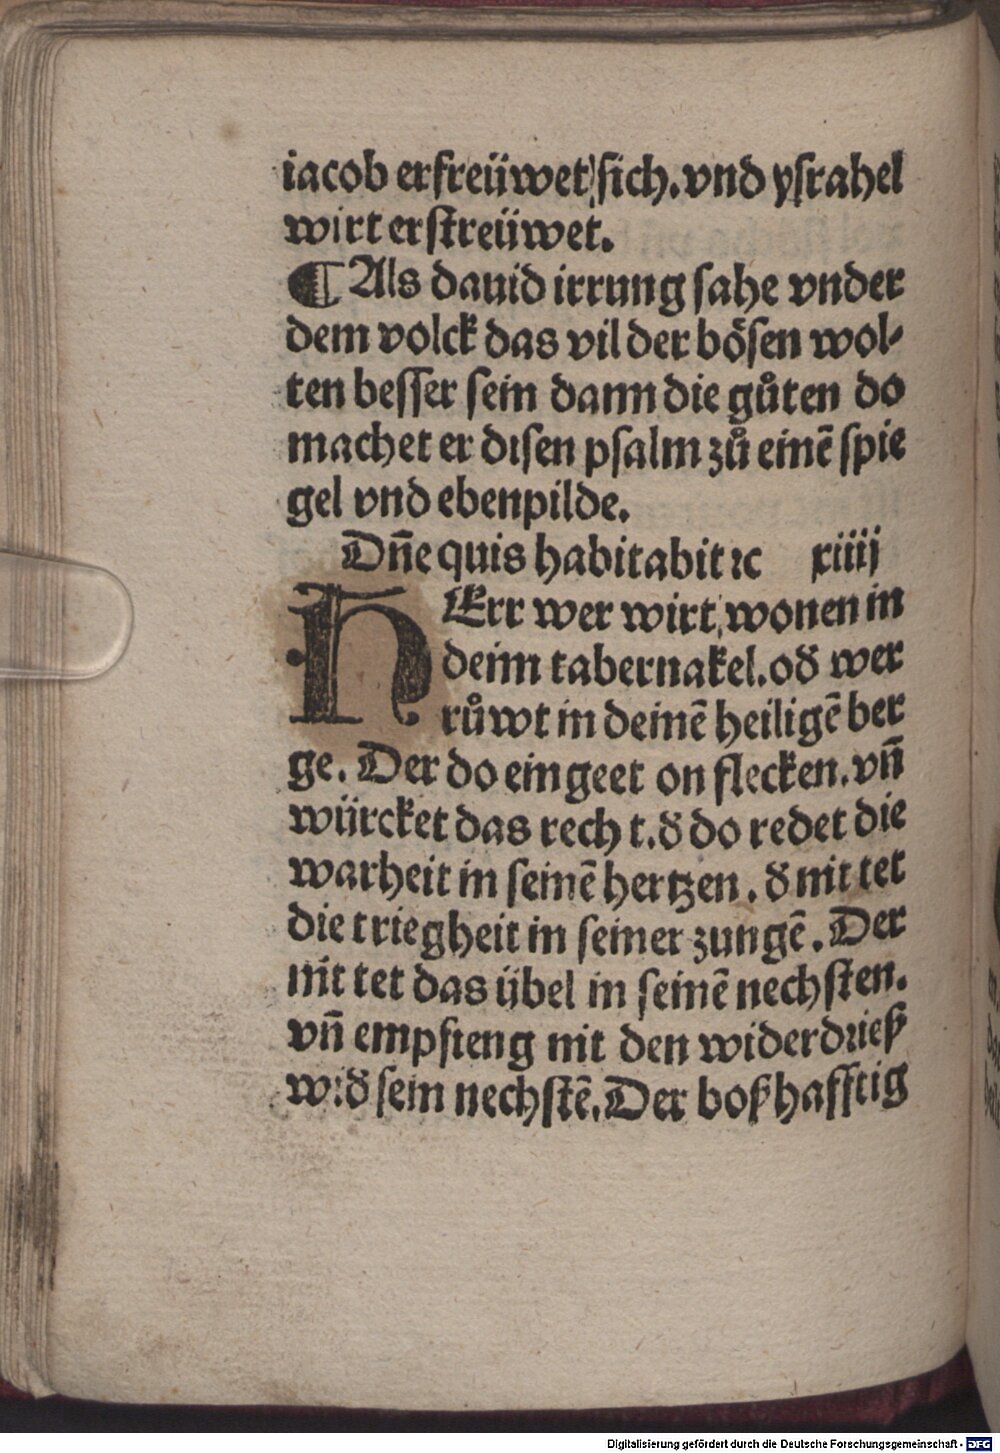 iacob erfreüwet sich. vnd ysrahel
wirt erstreüwet.
¶ Als dauid irrung sahe vnder
dem volck das vil der bösen wol-
ten besser sein dann die gůten do
machet er disen psalm zů einē spie
gel vnd ebenpilde.
Dn̄e quis habitabit ⁊c xiiij
HErr wer wirt wonen in
deim tabernakel. oď wer
růwt in deinē heiligē ber
ge. Der do ein geet on flecken. vn̄
würcket das rech t. ď do redet die
warheit in seinē hertzen. ď nit tet
die triegheit in seiner zungē. Der
nit tet das übel in seinē nechsten.
vn̄ empfieng nit den widerdrieß
wiď sein nechstē. Der boßhafftig
Digitalisierung gefördert durch die Deutsche Forschungsgemeinschaft - DFG